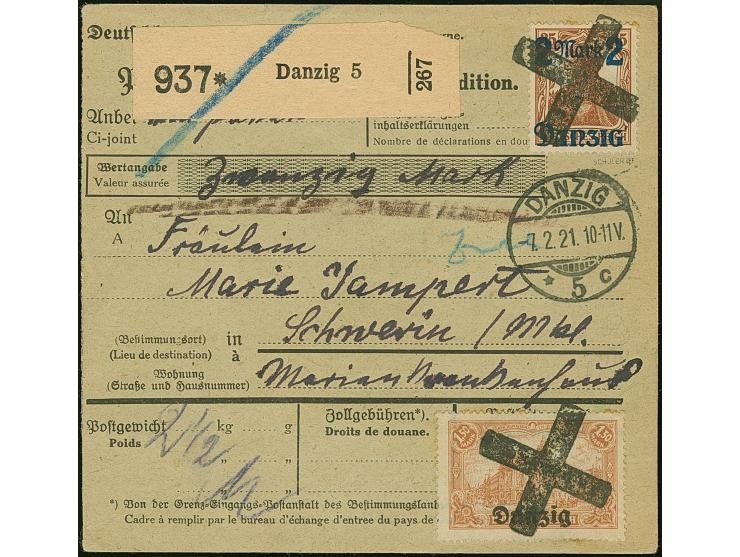 937* Danzig 5 267
dition.
2 Mark 2
DANZIG
Ci-joint
inhaltserklärungen
Nombre de déclarations en dou
Wertangabe
Valeur assurée
Zwanzig Mark
An
A
Fräulein
DANZIG
7.2.21. 10-11V.
* 5 c
Marie Jampert
(Bestimmungsort)
(Lieu de destination)
in
à
Schwerin / Mkl.
Wohnung
(Straße und Hausnummer)
Marienkrankenhaus
Postgewicht kg g
Poids
2 1/2
Zollgebühren*).
Droits de douane.
1,50 1,50
Danzig
*) Von der Grenz-Eingangs-Postanstalt des Bestimmungsland
Cadre à remplir par le bureau d'échange d'entrée du pays de